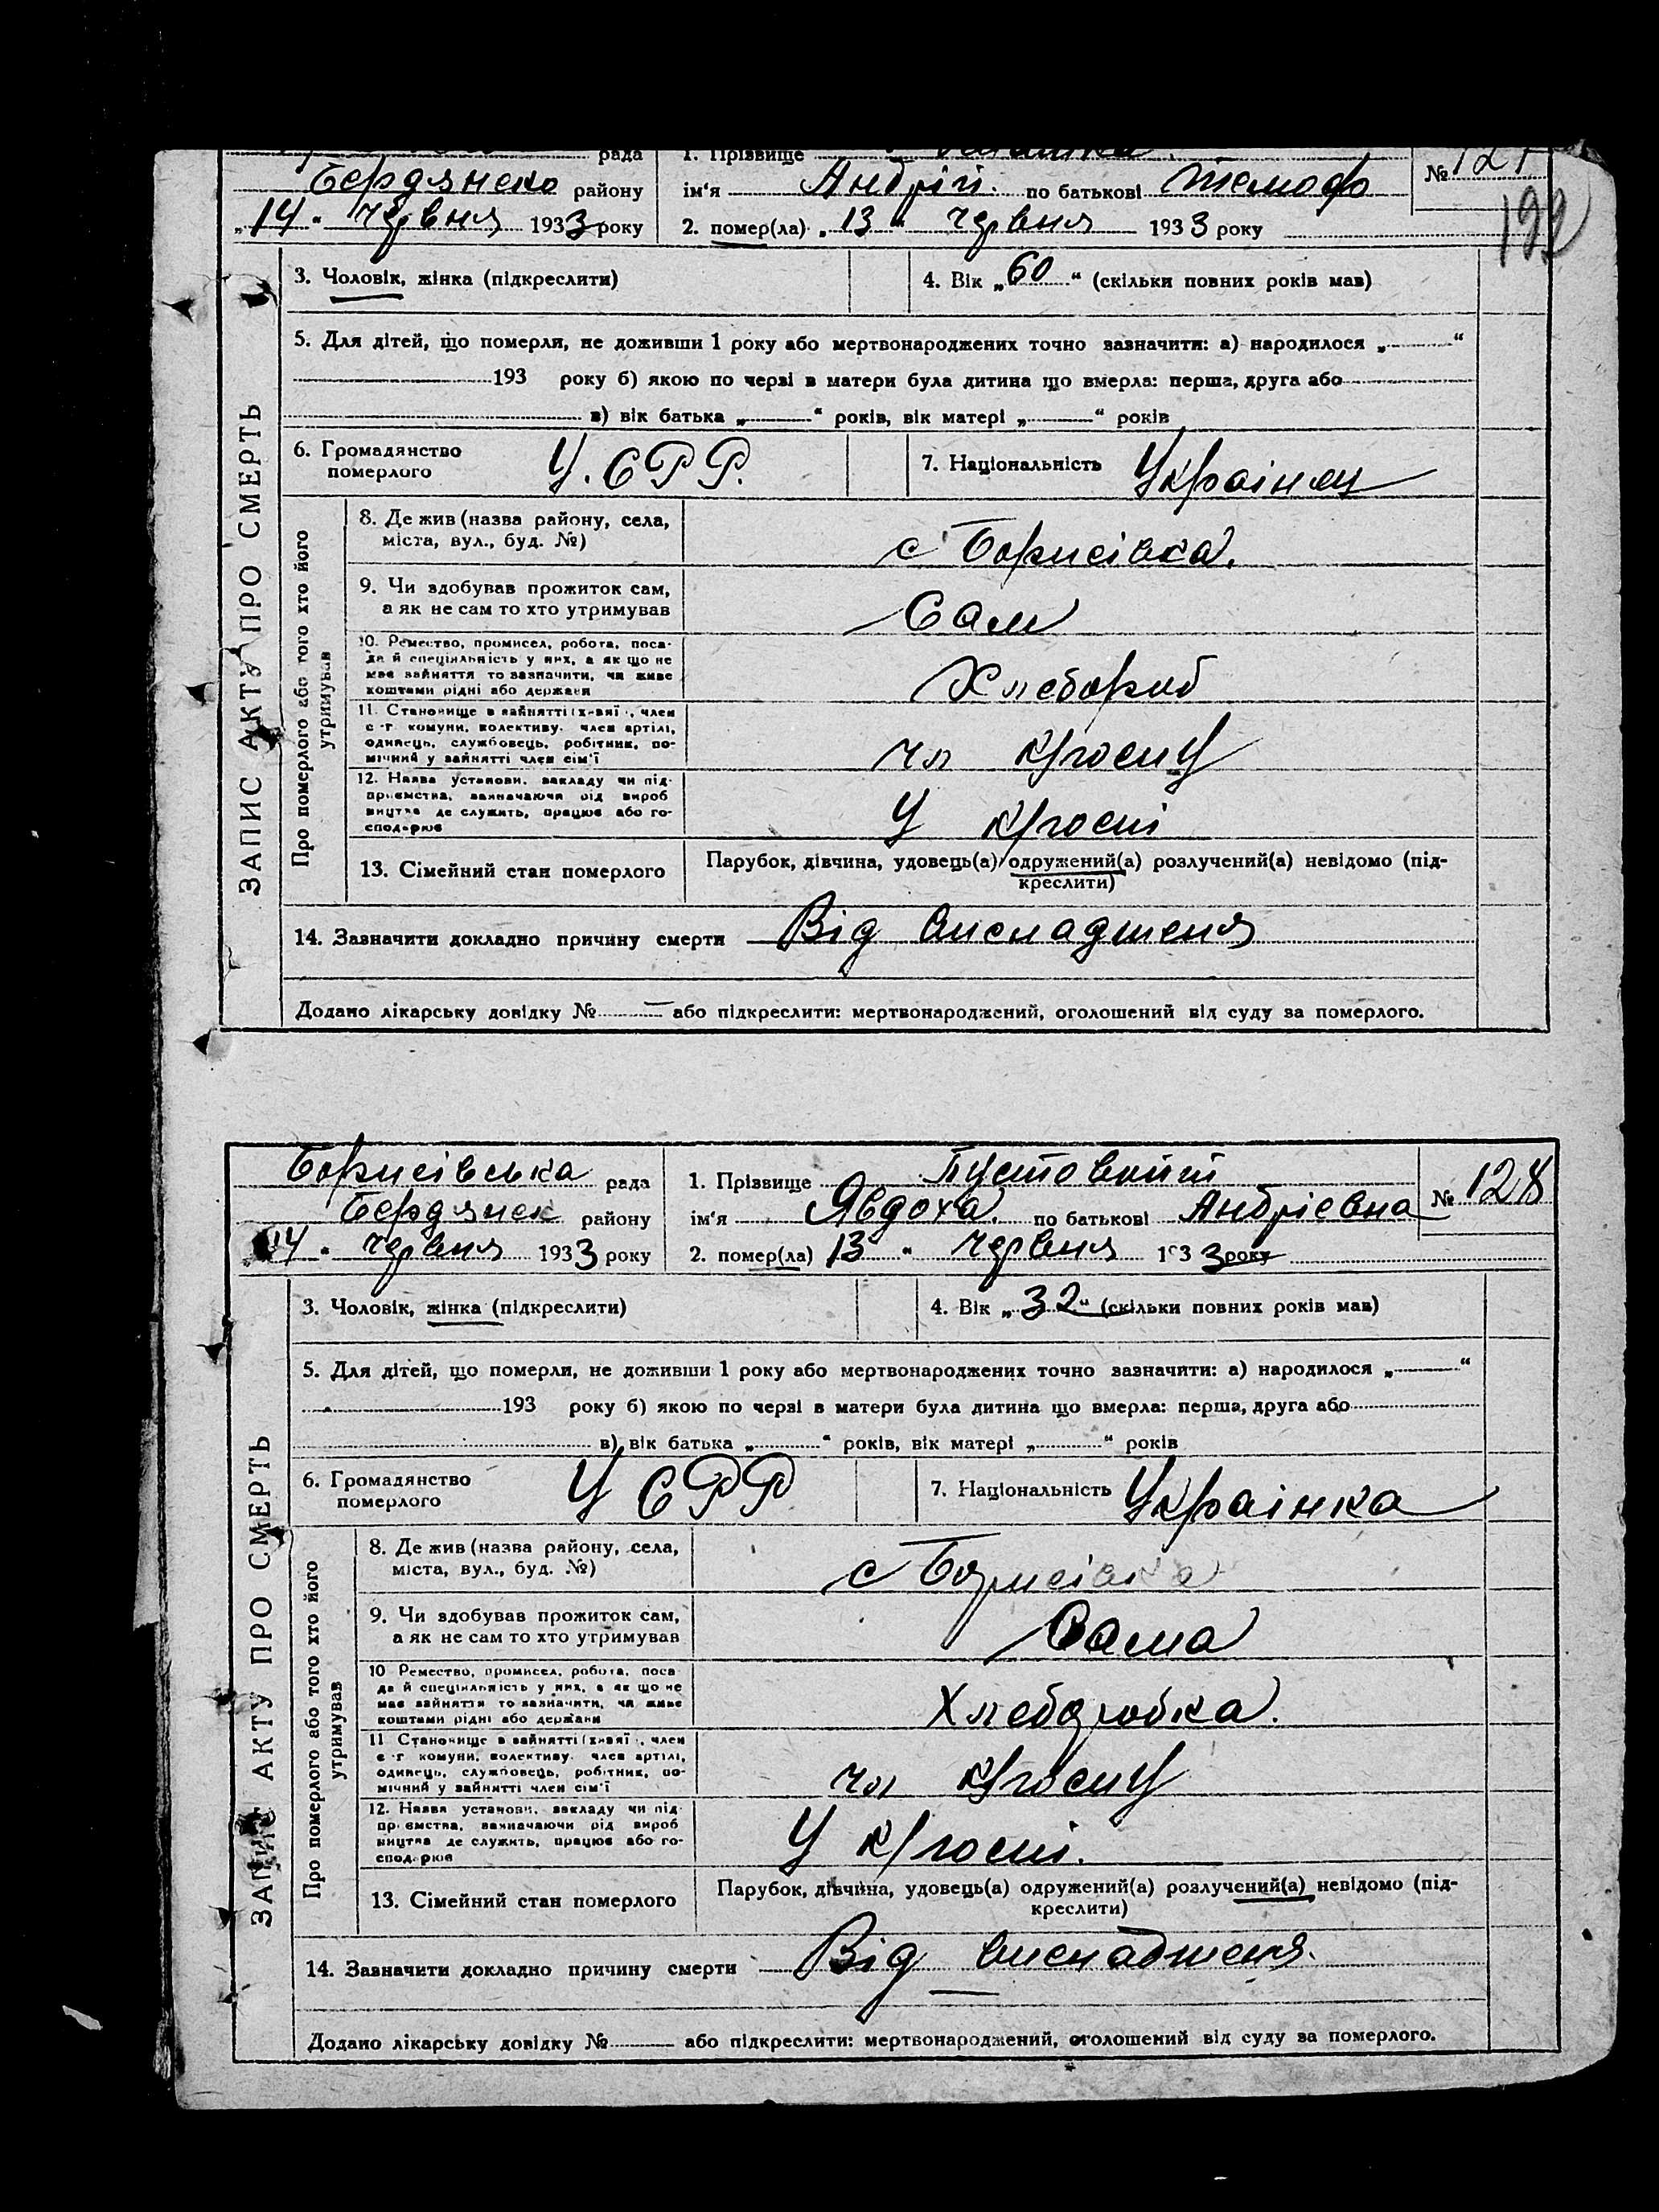 рада 1. Прізвище
Бердянско району ім'я Андрій. по батькові Тіемофо № 127
„14" червня 1933 року 2. помер(ла) „13" червня 1933 року
199
3. Чоловік, жінка (підкреслити) 4. Вік „60" (скільки повних років мав)
5. Для дітей, що померли, не доживши 1 року або мертвонароджених точно зазначити: а) народилося „ "
193 року б) якою по черзі в матери була дитина що вмерла: перша, друга або
в) вік батька „ " років, вік матері „ " років
6. Громадянство померлого У.СРР. 7. Національність Украінец
ЗАПИС АКТУ ПРО СМЕРТЬ
Про померлого або того хто його утримував
8. Де жив (назва району, села,
міста, вул., буд. №) с Борисівка.
9. Чи здобував прожиток сам,
а як не сам то хто утримував Сам
10. Ремество, промисел, робота, поса-
да й спеціяльність у них, а як що не
має зайняття то зазначити, чи живе
коштами рідні або держави Хлебороб
11. Становище в зайнятті (хазяї , член
с.-г комуни, колективу, член артілі,
одинець, службовець, робітник, по-
мічний у зайнятті член сім'ї чл кгоспу
12. Назва установи, закладу чи під-
приємства, зазначаючи рід вироб
ництва де служить, працює або го-
сподарює У кгоспі
13. Сімейний стан померлого Парубок, дівчина, удовець(а) одружений(а) розлучений(а) невідомо (під-
креслити)
14. Зазначити докладно причину смерти Від виснадженя
Додано лікарську довідку № — або підкреслити: мертвонароджений, оголошений від суду за померлого.
Борисівська рада 1. Прізвище Пустовийт
Бердянск району ім'я Явдоха. по батькові Андрієвна № 128
„14" червня 1933 року 2. помер(ла) 13 " червня 1933 року
3. Чоловік, жінка (підкреслити) 4. Вік „32" (скільки повних років мав)
5. Для дітей, що померли, не доживши 1 року або мертвонароджених точно зазначити: а) народилося „ "
193 року б) якою по черзі в матери була дитина що вмерла: перша, друга або
в) вік батька „ " років, вік матері „ " років
6. Громадянство померлого УСРР 7. Національність Украінка
ЗАПИС АКТУ ПРО СМЕРТЬ
Про померлого або того хто його утримував
8. Де жив (назва району, села,
міста, вул., буд. №) с Борисівка
9. Чи здобував прожиток сам,
а як не сам то хто утримував Сама
10 Ремество, промисел, робота, поса
да й спеціяльність у них, а як що не
має зайняття то зазначити, чи живе
коштами рідні або держави Хлеборобка.
11 Становище в зайнятті (хазяї , член
с.-г комуни, колективу, член артілі,
одинець, службовець, робітник, по-
мічний у зайнятті член сім'ї чл кгоспу
12. Назва установи, закладу чи під-
приємства, зазначаючи рід вироб
ництва де служить, працює або го-
сподарює У кгоспі.
13. Сімейний стан померлого Парубок, дівчина, удовець(а) одружений(а) розлучений(а) невідомо (під-
креслити)
14. Зазначити докладно причину смерти Від виснадженя.
Додано лікарську довідку № або підкреслити: мертвонароджений, оголошений від суду за померлого.